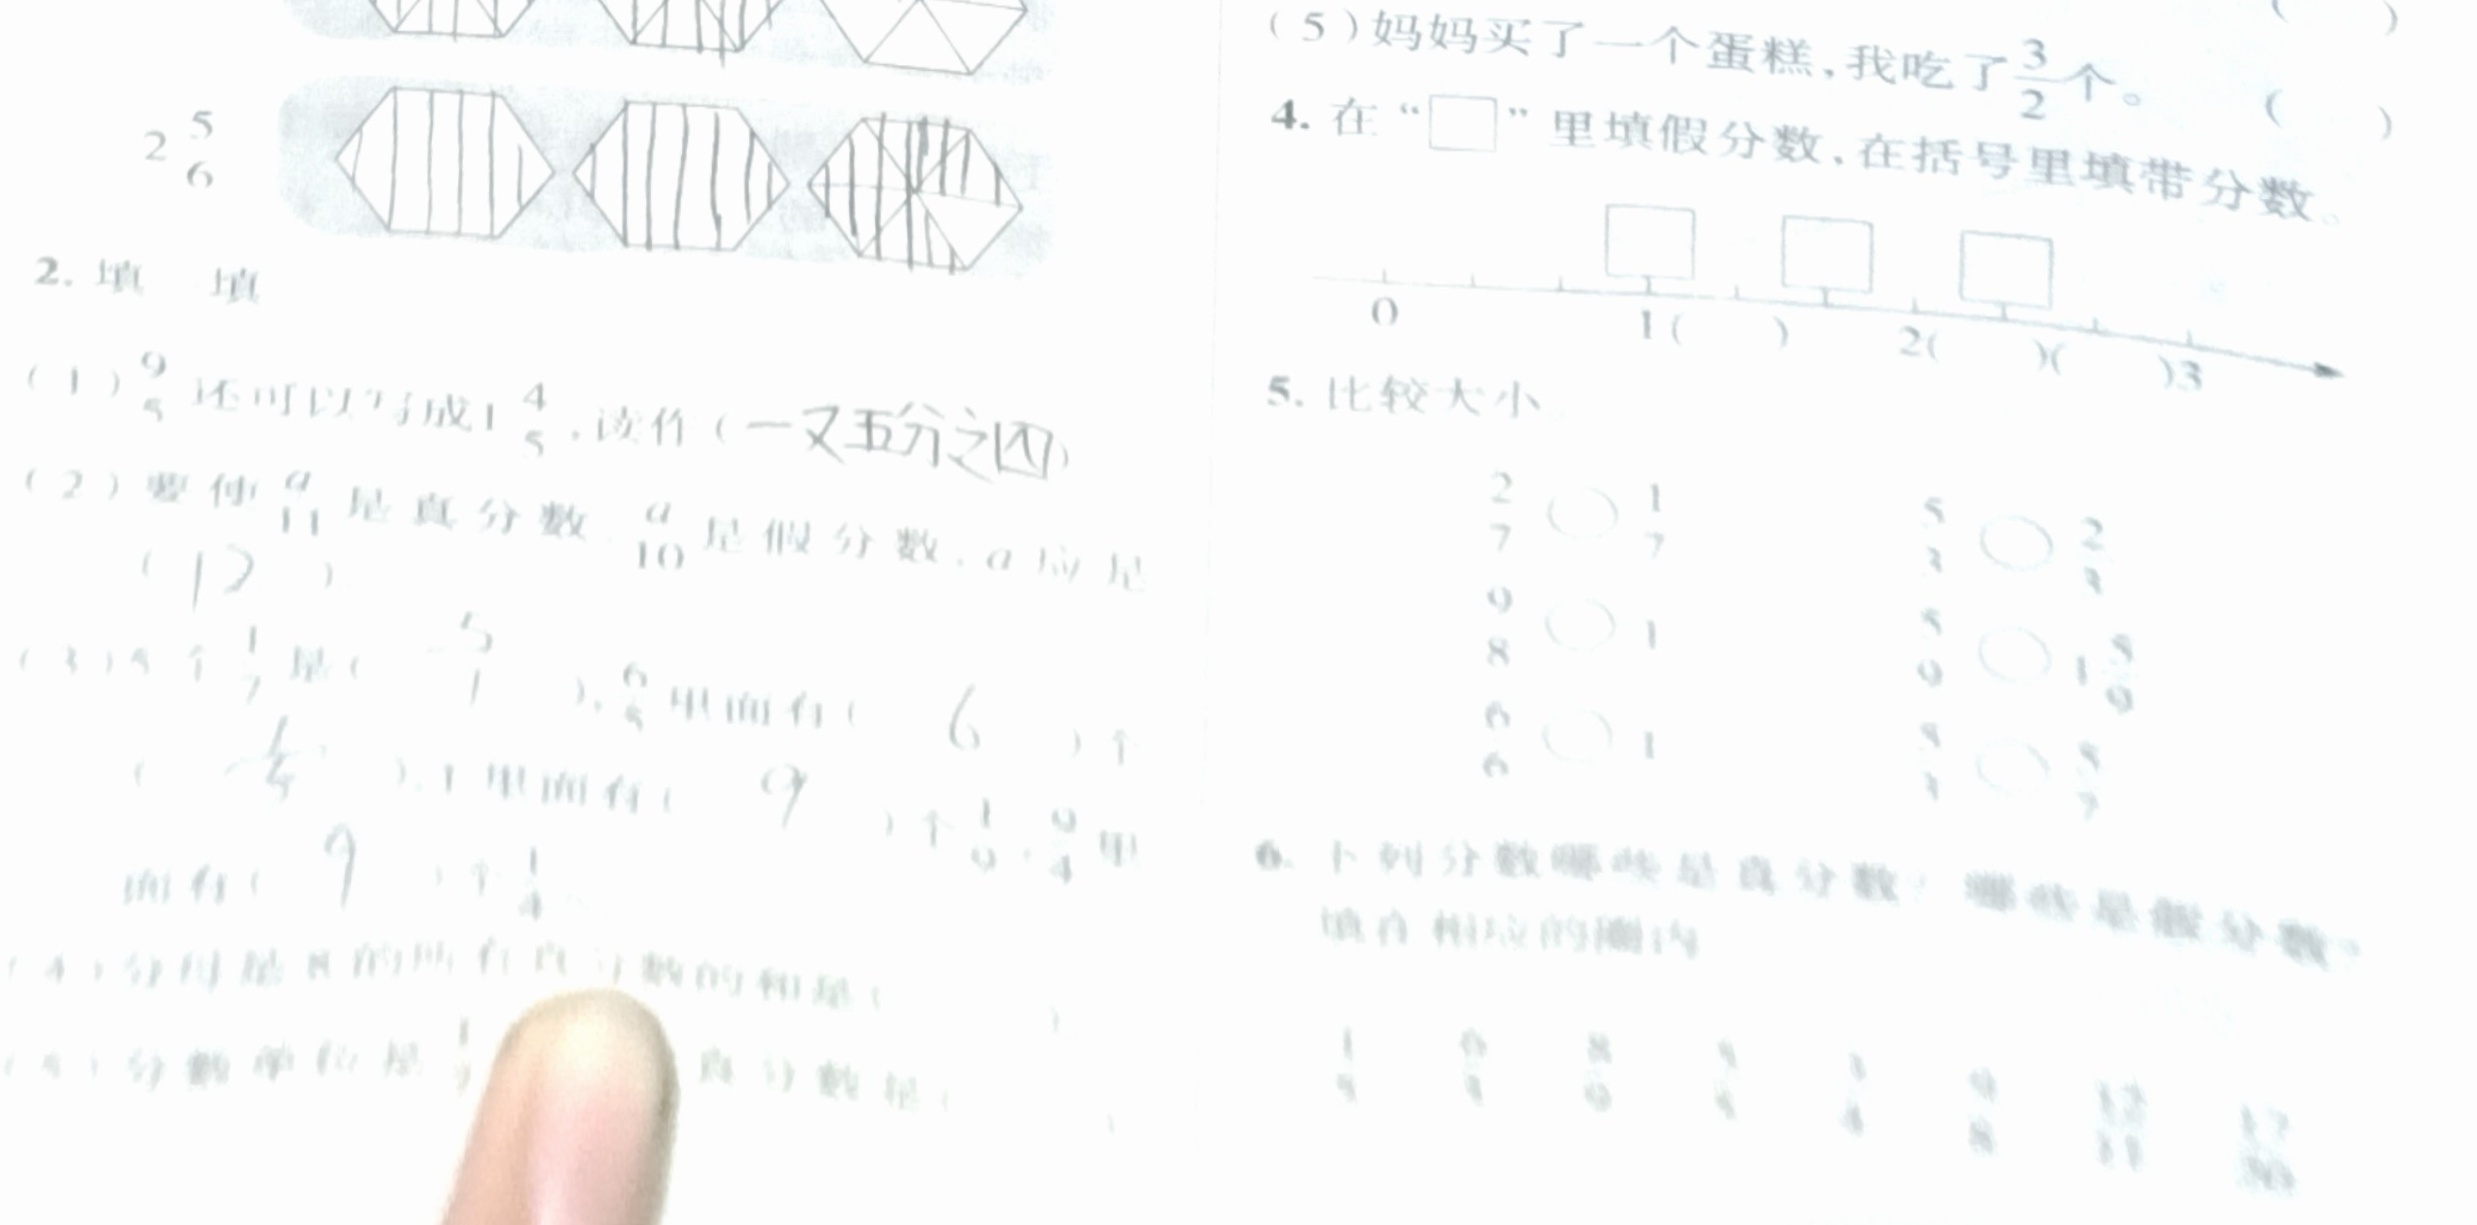 2 5/6
2. 填一填
(1) 9/5 还可以写成1 4/5,读作(一又五分之四)
(2) 要使 a/11 是真分数, a/10 是假分数,a应是
(12)
(3) 5个 1/7 是(5/1), 6/5 里面有(6)个
(1/5),1里面有(9)个 1/9, 9/4 里
面有(9)个 1/4
(4) 分母是 的所有真分数的和是( )
(5) 分数单位是 真分数是( )
( )
(5)妈妈买了一个蛋糕,我吃了 3/2 个。 ( )
4. 在“□”里填假分数、在括号里填带分数。
0 1( ) 2( )( )3
5. 比较大小
2/7 ○ 1/7 5/3 ○ 2/3
9/8 ○ 1 5/9 ○ 1 5/9
6/6 ○ 1 5/3 ○ 5/7
6. 下列分数哪些是真分数?哪些是假分数?
填在相应的圈内